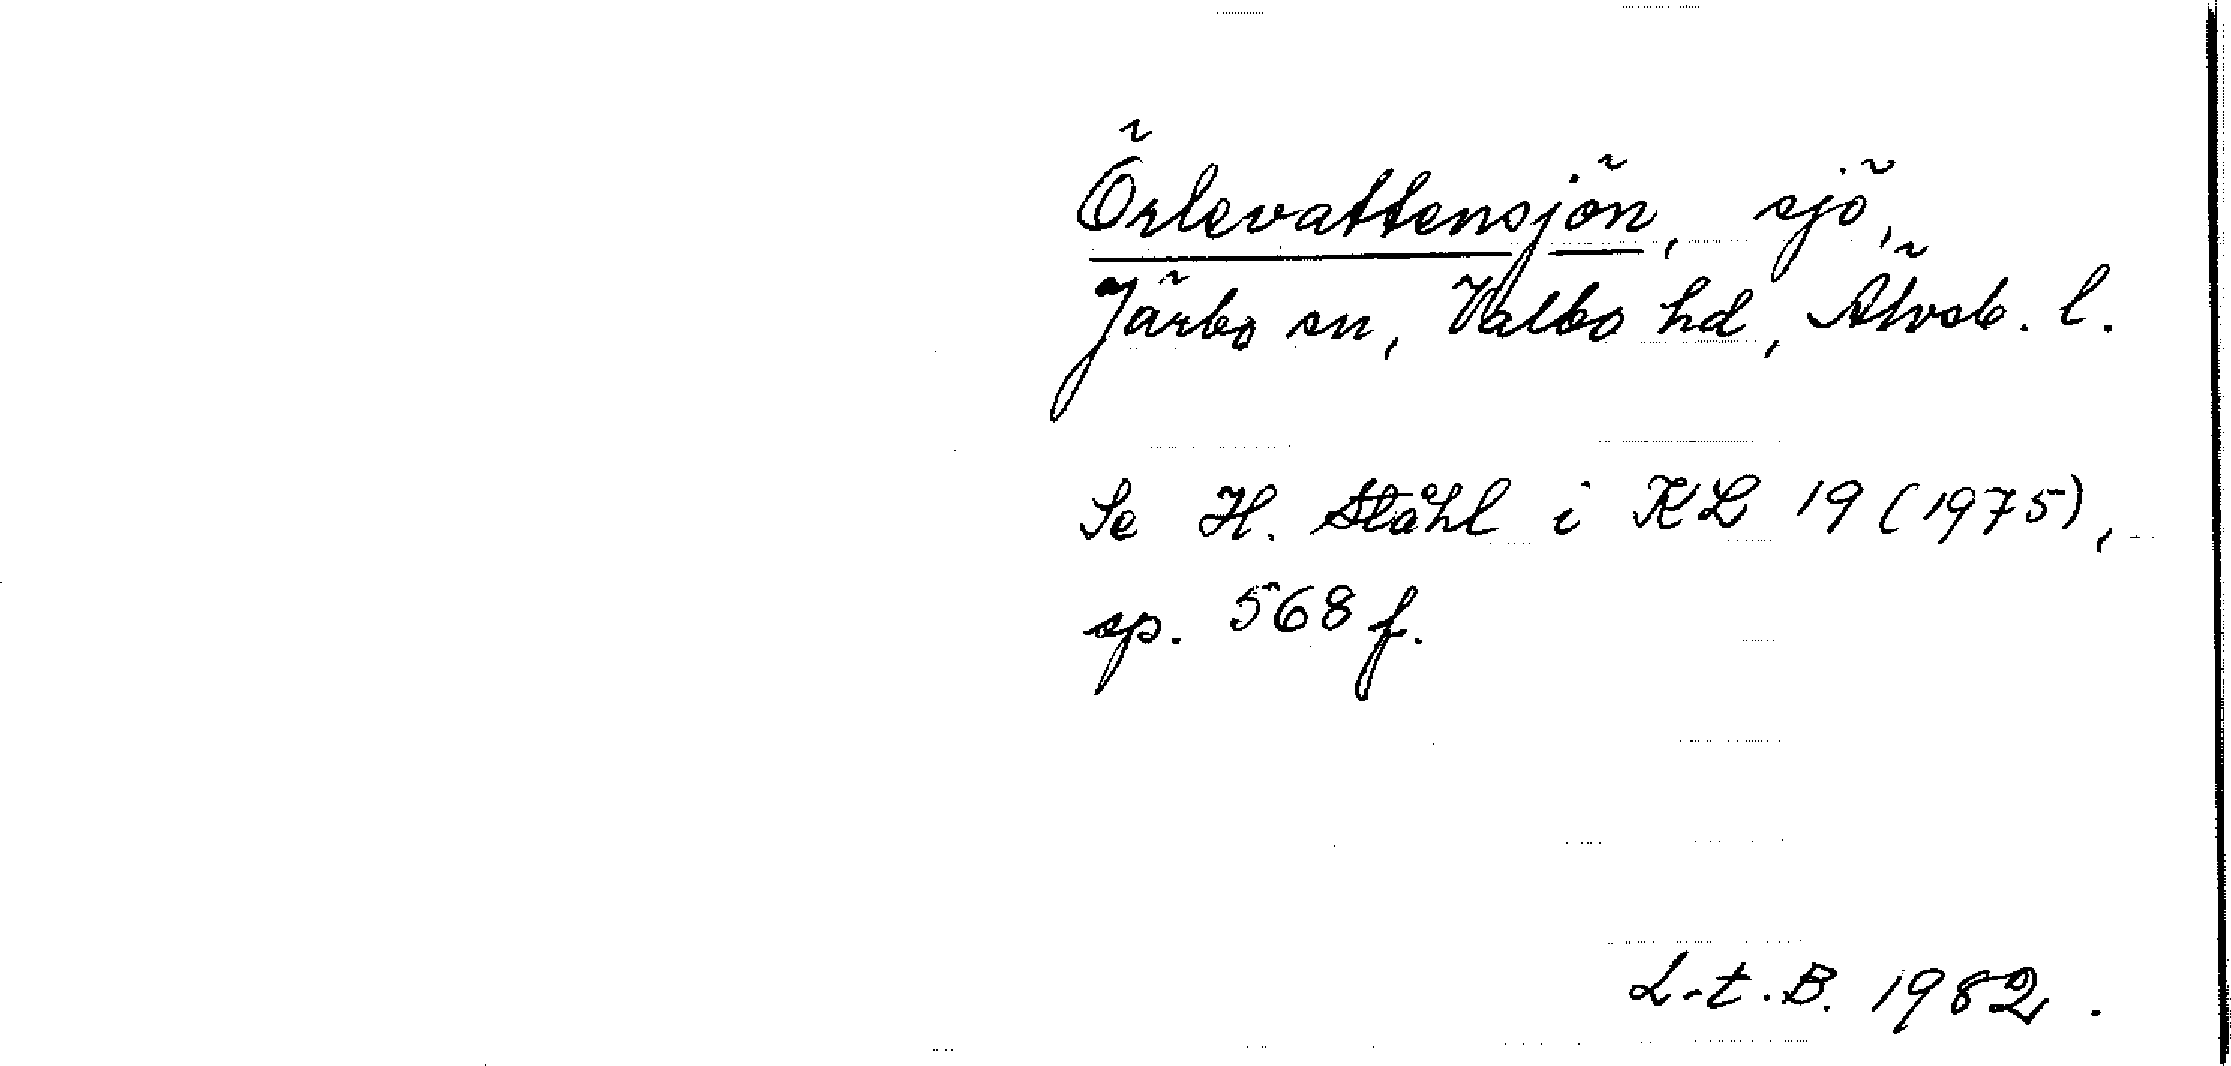 Örlevattensjön, sjö,
Järbo sn, Valbo hd, Älvsb. l.
Se H. Ståhl i KL 19 (1975),
sp. 568 f.
L-t. B. 1982.